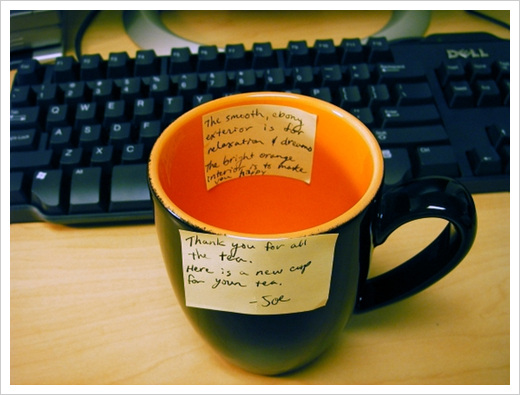 DELL
The smooth, ebony
exterior is for
relaxation & dreams
The bright orange
interior is to make
you happy
Thank you for all
the tea.
Here is a new cup
for your tea.
-Joe